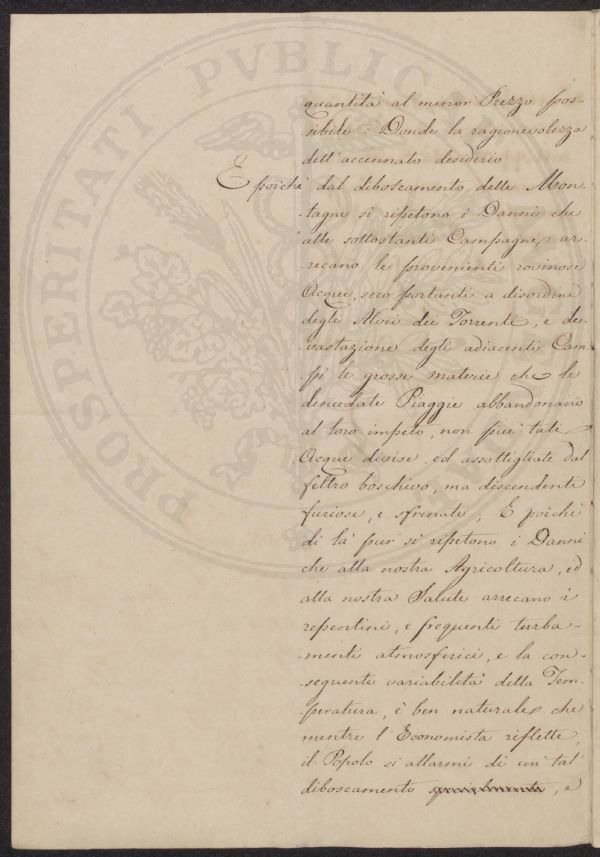 PROSPERITATI PUBLICAE
quantità al minor Prezzo pos-
sibile: Donde la ragionevolezza
dell'accennato desiderio
E poichè dal diboscamento delle Mon-
-tagne si ripetono i Danni che
alle sottostanti Campagne ar-
-recano le provenienti rovinose
Acque, seco portanti a disordine
degli Alvei dei Torrenti, e de-
-vastazione degli adiacenti Cam
pi le grosse materie che le
denudate Piaggie abbandonano
al loro impeto, non più tali
Acque divise, ed assottigliate dal
feltro boschivo, ma discendenti
furiose, e sfrenate; E poichè
di là pur si ripetono i Danni
che alla nostra Agricoltura, ed
alla nostra Salute arrecano i
repentini, e frequenti turba-
-menti atmosferici, e la con-
-seguente variabilità della Tem-
-peratura, è ben naturale che
mentre l'Economista riflette,
il Popolo si allarmi di un tal
diboscamento, e